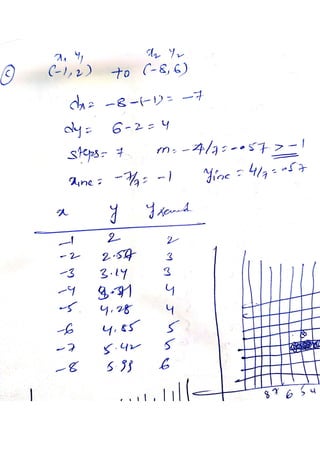 x₁ y₁ x₂ y₂
c (-1, 2) to (-8, 6)
dx = -8-(-1) = -7
dy = 6-2 = 4
steps = 7 m = -4/7 = -.57 > -1
xinc = -7/7 = -1 yinc = 4/7 = .57
x y y round
-1 2 2
-2 2.57 3
-3 3.14 3
-4 3.71 4
-5 4.28 4
-6 4.85 5
-7 5.42 5
-8 5.99 6
8 7 6 5 4